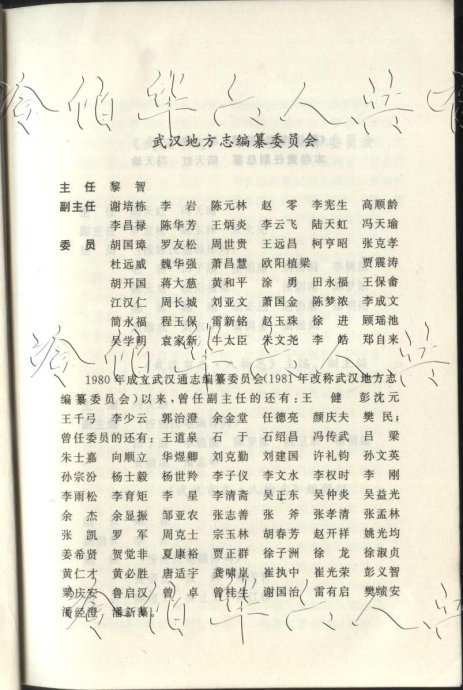 武汉地方志编纂委员会
主任 黎智
副主任 谢培栋 李岩 陈元林 赵零 李宪生 高顺龄
李昌禄 陈华芳 王炳炎 李云飞 陆天虹 冯天瑜
委员 胡国璋 罗友松 周世贵 王远昌 柯亨昭 张克孝
杜远威 魏华强 萧昌慧 欧阳植梁 贾震涛
胡开国 蒋大慈 黄和平 涂勇 田永福 王保畲
江汉仁 周长城 刘亚文 萧国金 陈梦浓 李成文
简永福 程玉保 雷新铭 赵玉珠 徐进 顾瑶池
吴学明 袁家新 牛太臣 朱文尧 李皓 郑自来
1980年成立武汉通志编纂委员会(1981年改称武汉地方志
编纂委员会)以来,曾任副主任的还有:王健 彭沈元
王千弓 李少云 郭治澄 余金堂 任德亮 颜庆夫 樊民;
曾任委员的还有:王道泉 石于 石绍昌 冯传武 吕梁
朱士嘉 向顺立 华煜卿 刘克勤 刘建国 许礼钧 孙文英
孙宗汾 杨士毅 杨世羚 李子仪 李文水 李权时 李刚
李雨松 李育矩 李星 李清斋 吴正东 吴仲炎 吴益光
余杰 余显振 邹亚农 张志善 张斧 张孝清 张孟林
张凯 罗军 周克士 宗玉林 胡春芳 赵开祥 姚光均
姜希贤 贺觉非 夏康裕 贾正群 徐子洲 徐龙 徐淑贞
黄仁才 黄必胜 唐适宇 龚啸岚 崔执中 崔光荣 彭义智
粱庆安 鲁启汉 曾卓 曾桂生 谢国治 雷有启 樊缤安
潘经澄 潘新藻。